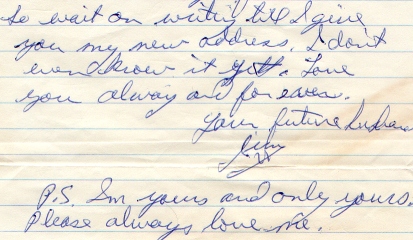 So wait on writing till I give
you my new address. I don't
even know it yet. Love
you always and for ever.
Your future husband
Jim
P.S. I'm yours and only yours.
Please always love me.